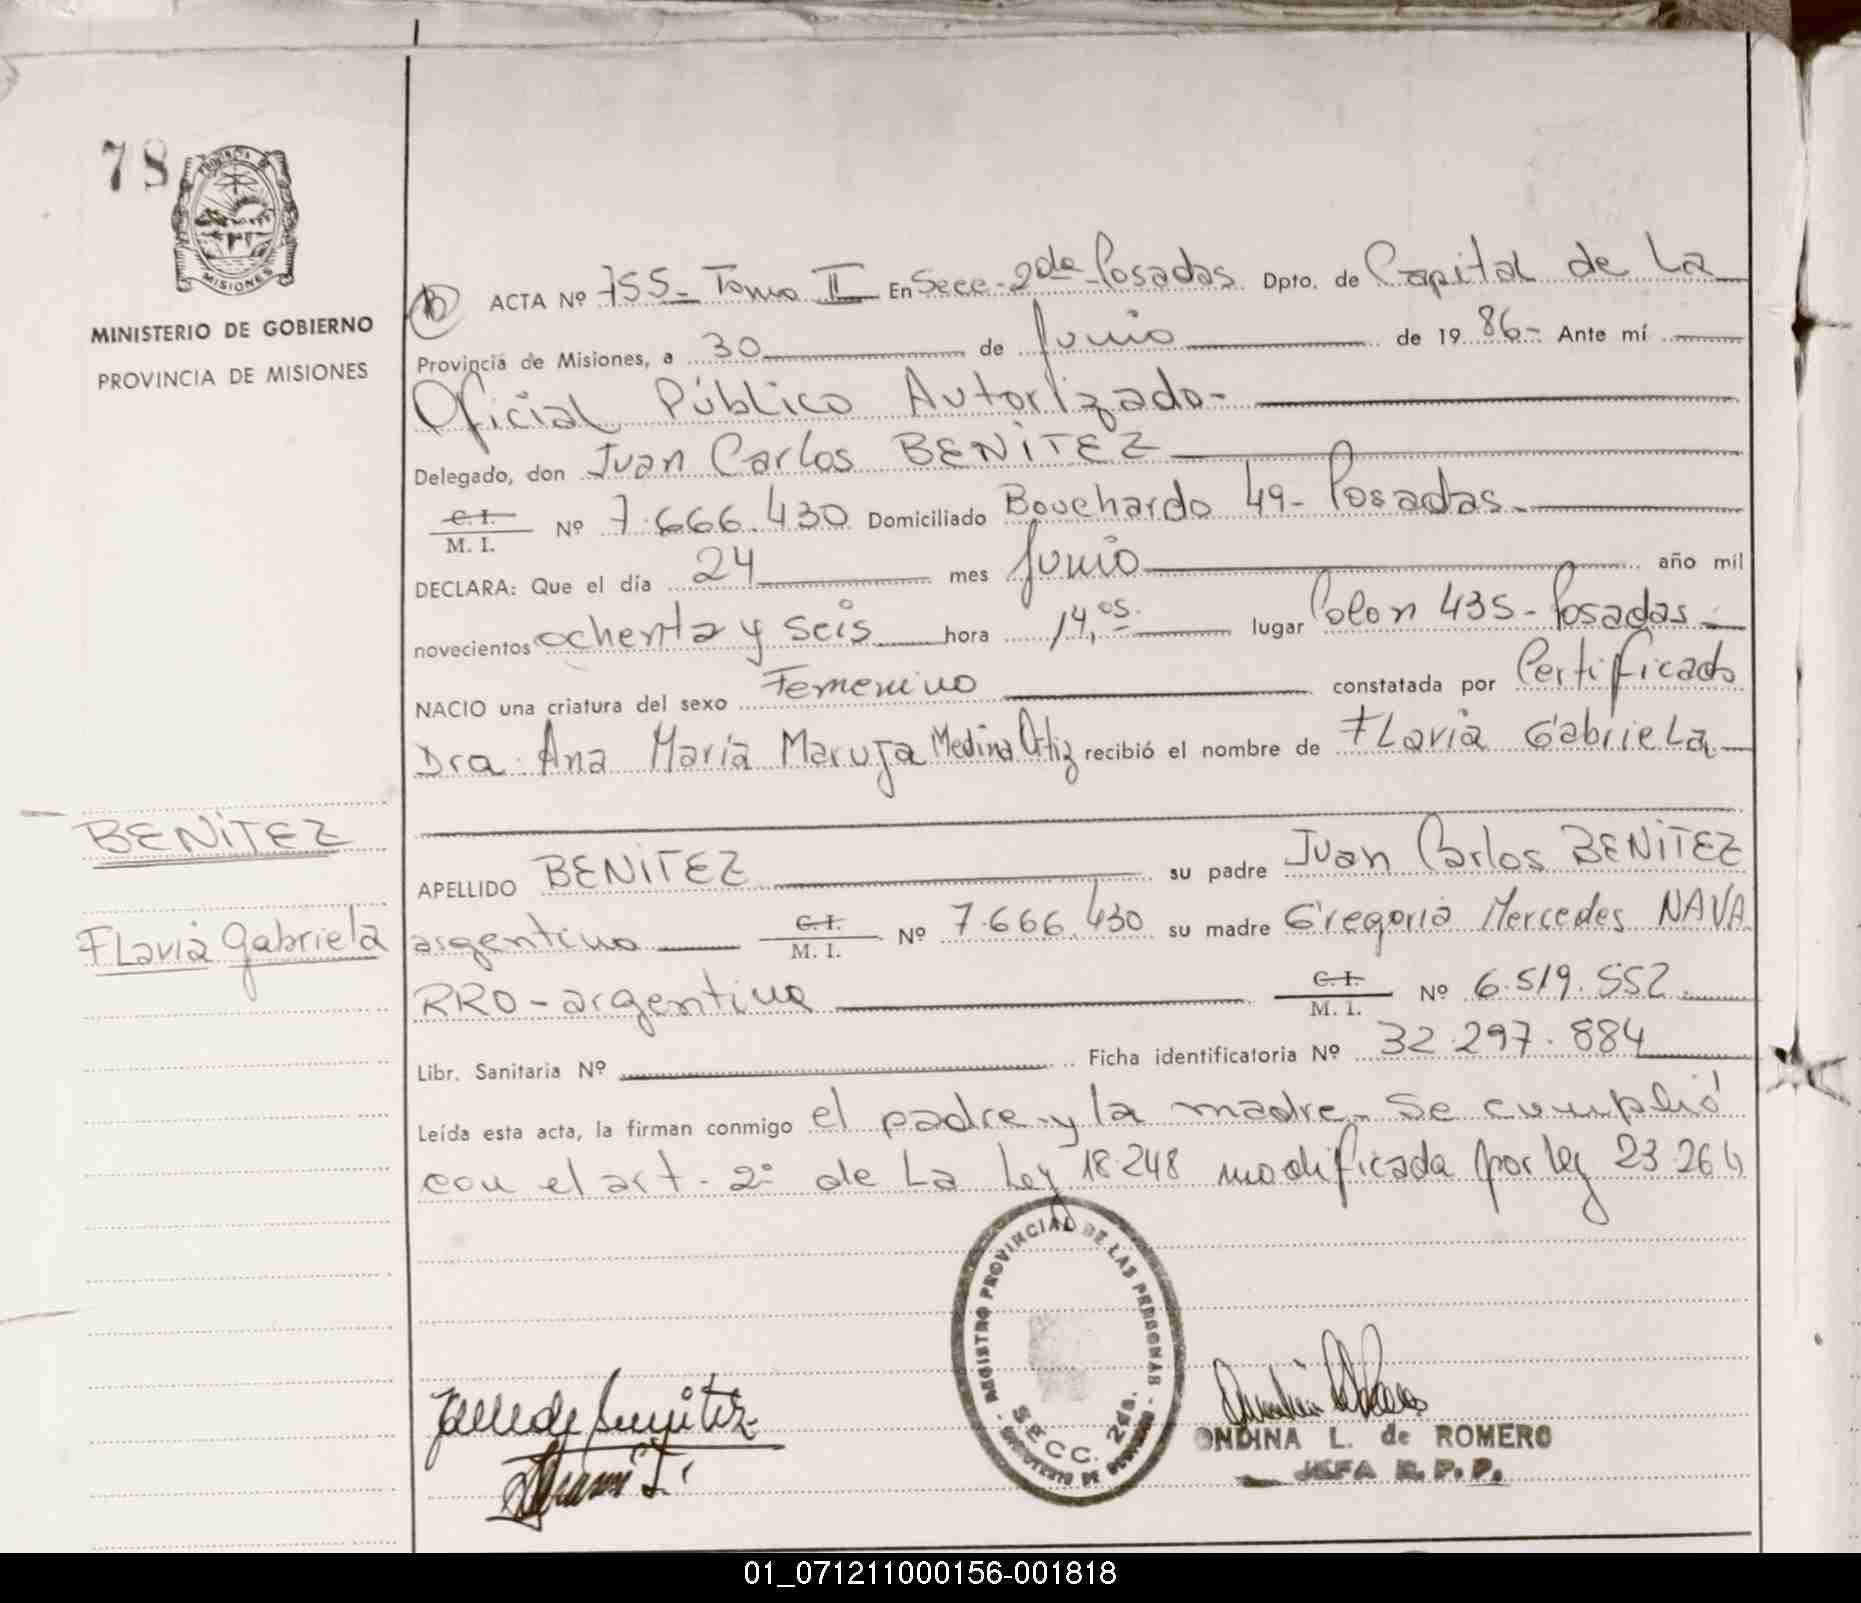 78
PROVINCIA DE
MISIONES
MINISTERIO DE GOBIERNO
PROVINCIA DE MISIONES
ACTA Nº 755- Tomo II En Secc. 2da Posadas Dpto. de Capital de La
Provincia de Misiones, a 30 de Junio de 19 86- Ante mí
Oficial Público Autorizado-
Delegado, don Juan Carlos BENITEZ
C. I.
M. I. Nº 7.666.430 Domiciliado Bouchardo 49- Posadas-
DECLARA: Que el día 24 mes Junio año mil
novecientos ochenta y seis hora 14,05 lugar Colon 435- Posadas-
NACIO una criatura del sexo Femenino constatada por Certificado
Dra. Ana María Maruja Medina Ortiz recibió el nombre de Flavia Gabriela
BENITEZ
Flavia Gabriela
APELLIDO BENITEZ su padre Juan Carlos BENITEZ
argentino C. I.
M. I. Nº 7.666.430 su madre Gregoria Mercedes NAVA
RRO - argentina C. I.
M. I. Nº 6.519.552
Libr. Sanitaria Nº Ficha identificatoria Nº 32.297.884
Leída esta acta, la firman conmigo el padre y la madre. Se cumplió
con el art. 2º de La Ley 18.248 modificada por ley 23.264
REGISTRO PROVINCIAL DE LAS PERSONAS
SECC. 2da.
ONDINA L. de ROMERO
JEFA R. P. P.
01_071211000156-001818